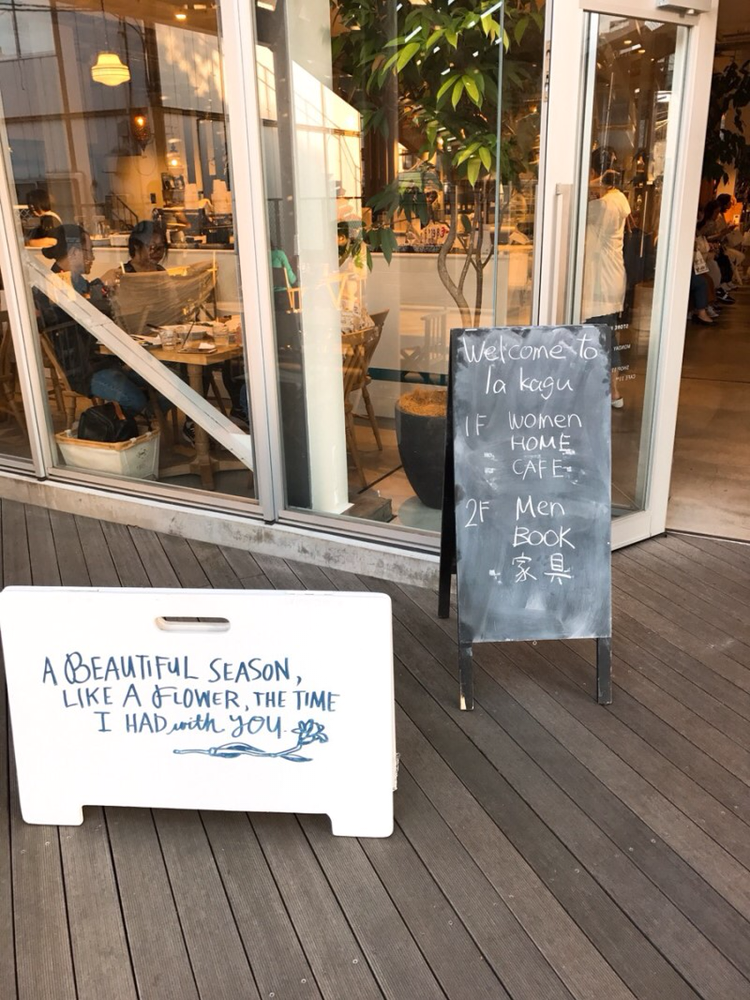 Welcome to
la kagu
1F Women
HOME
CAFE
2F Men
BOOK
家具
A BEAUTIFUL SEASON,
LIKE A FLOWER, THE TIME
I HAD with YOU.